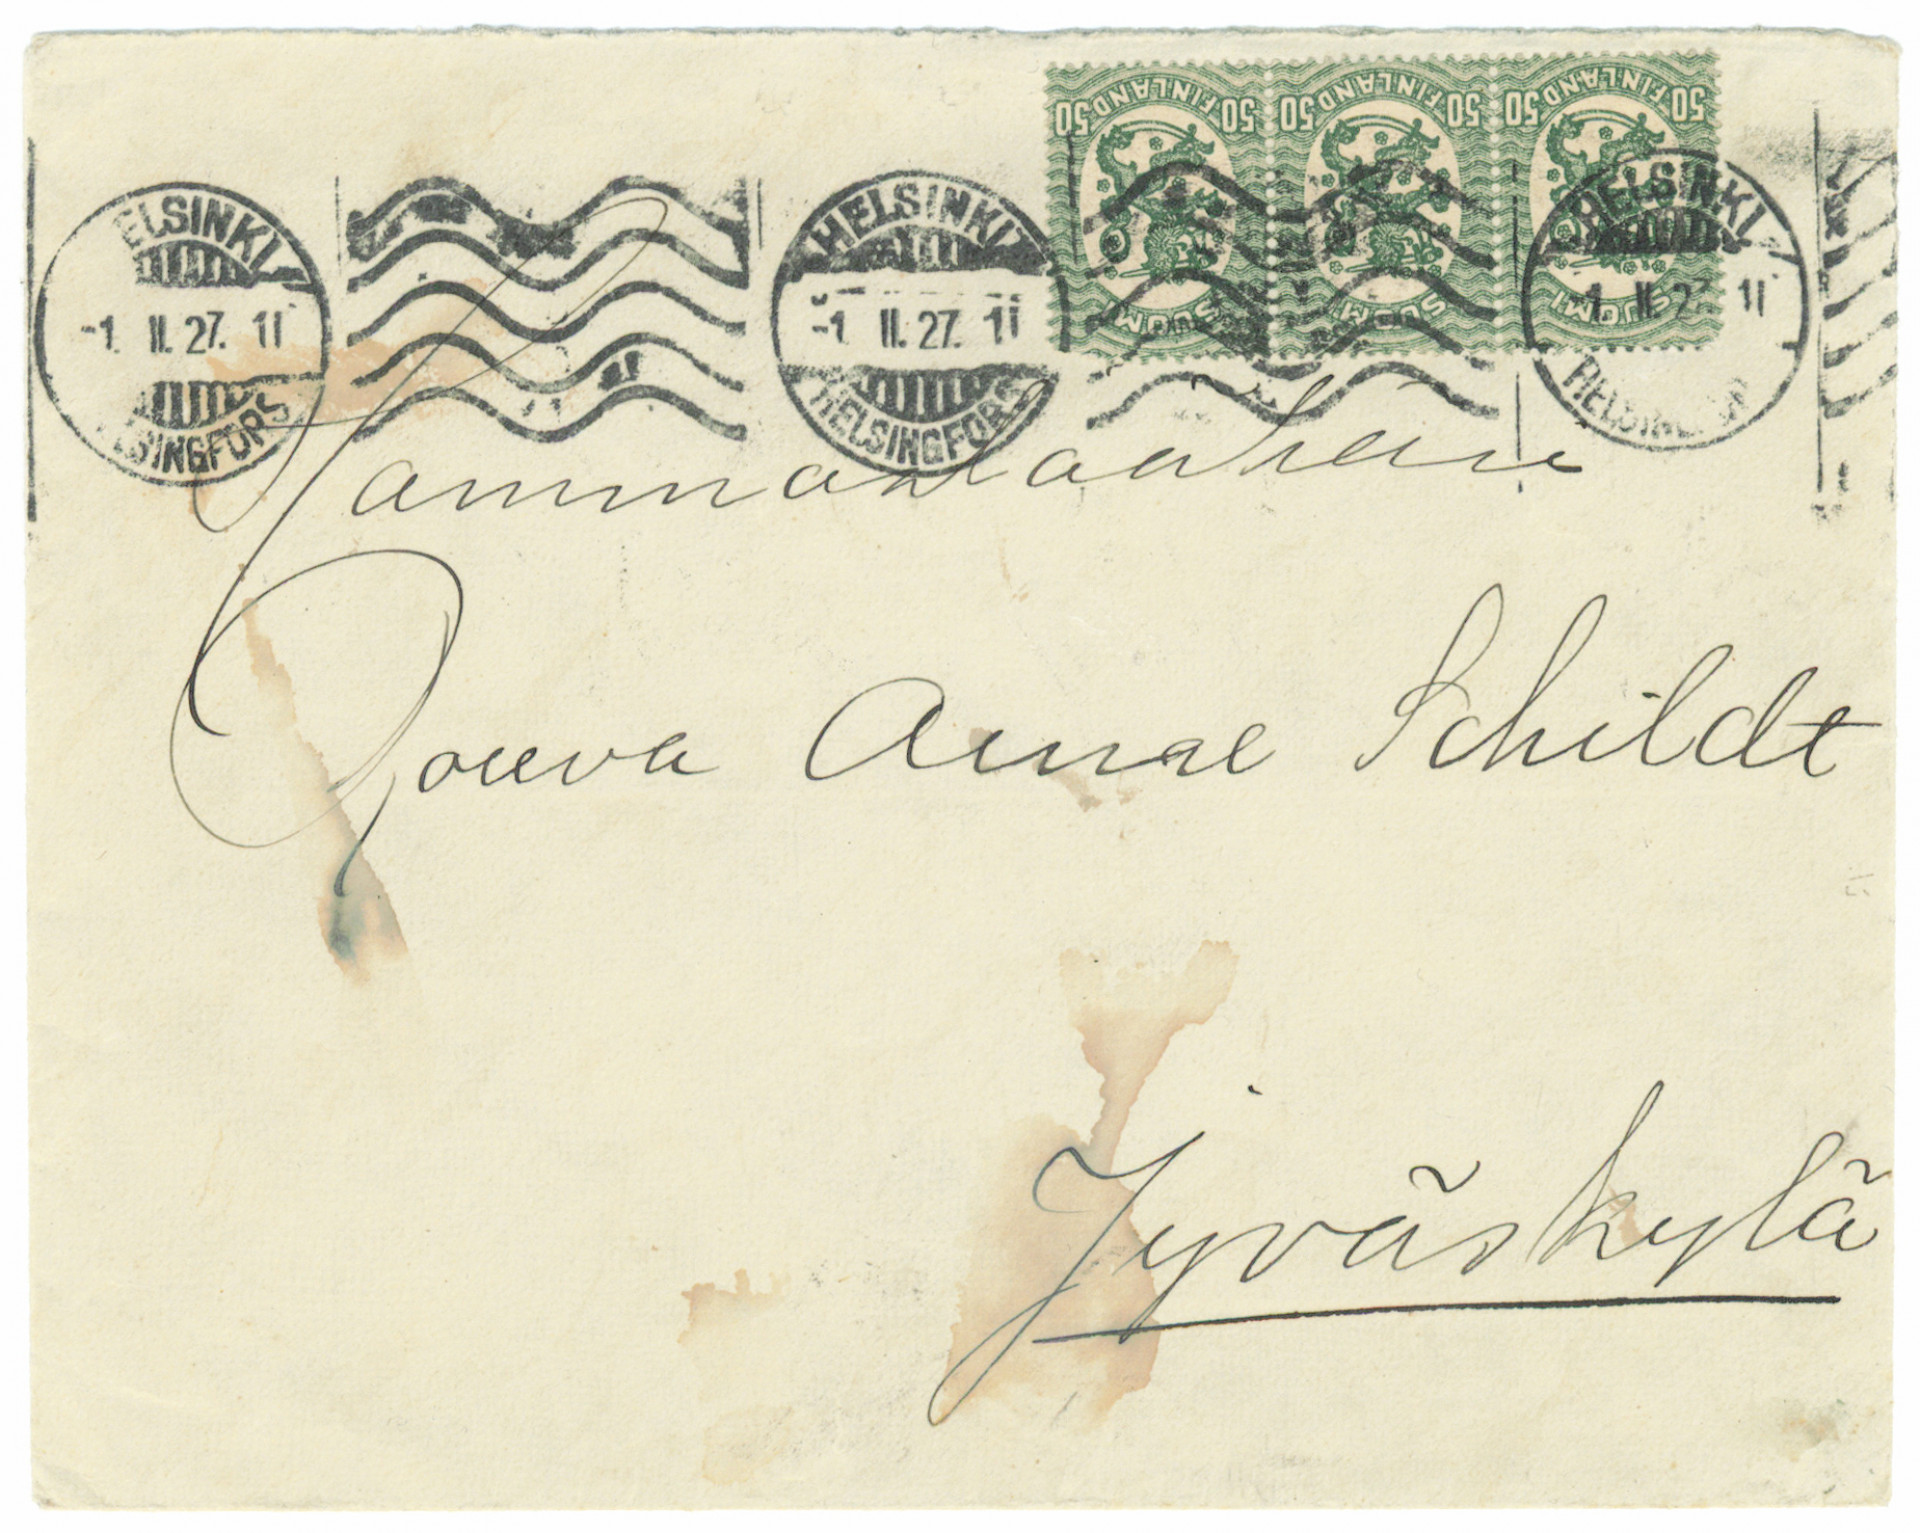 50 FINLAND 50 50 FINLAND 50 50 FINLAND 50
SUOMI SUOMI SUOMI
HELSINKI HELSINKI HELSINKI
-1. II. 27. 11 -1. II. 27. 11 -1. II. 27. 11
HELSINGFORS HELSINGFORS HELSINGFORS
Rouva Aune Schildt
Jyväskylä